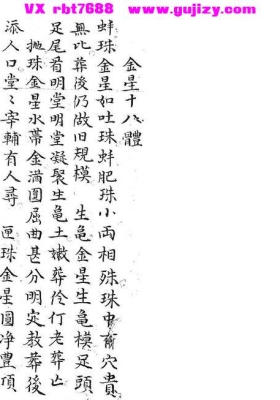 VX rbt7688 www.gujizy.com
金星十八體
蚌珠金星如吐珠蚌肥珠小両相殊珠中有穴貴
無比葬後仍做旧規模 生亀金星生亀模足頭
足尾看明堂明堂凝聚生亀土嫩葬伶仃老葬亡
抛珠金星水幕金満圓屈曲甚分明定教葬後
派人口堂〻宰輔有人尋 匣珠金星圓净豊頂